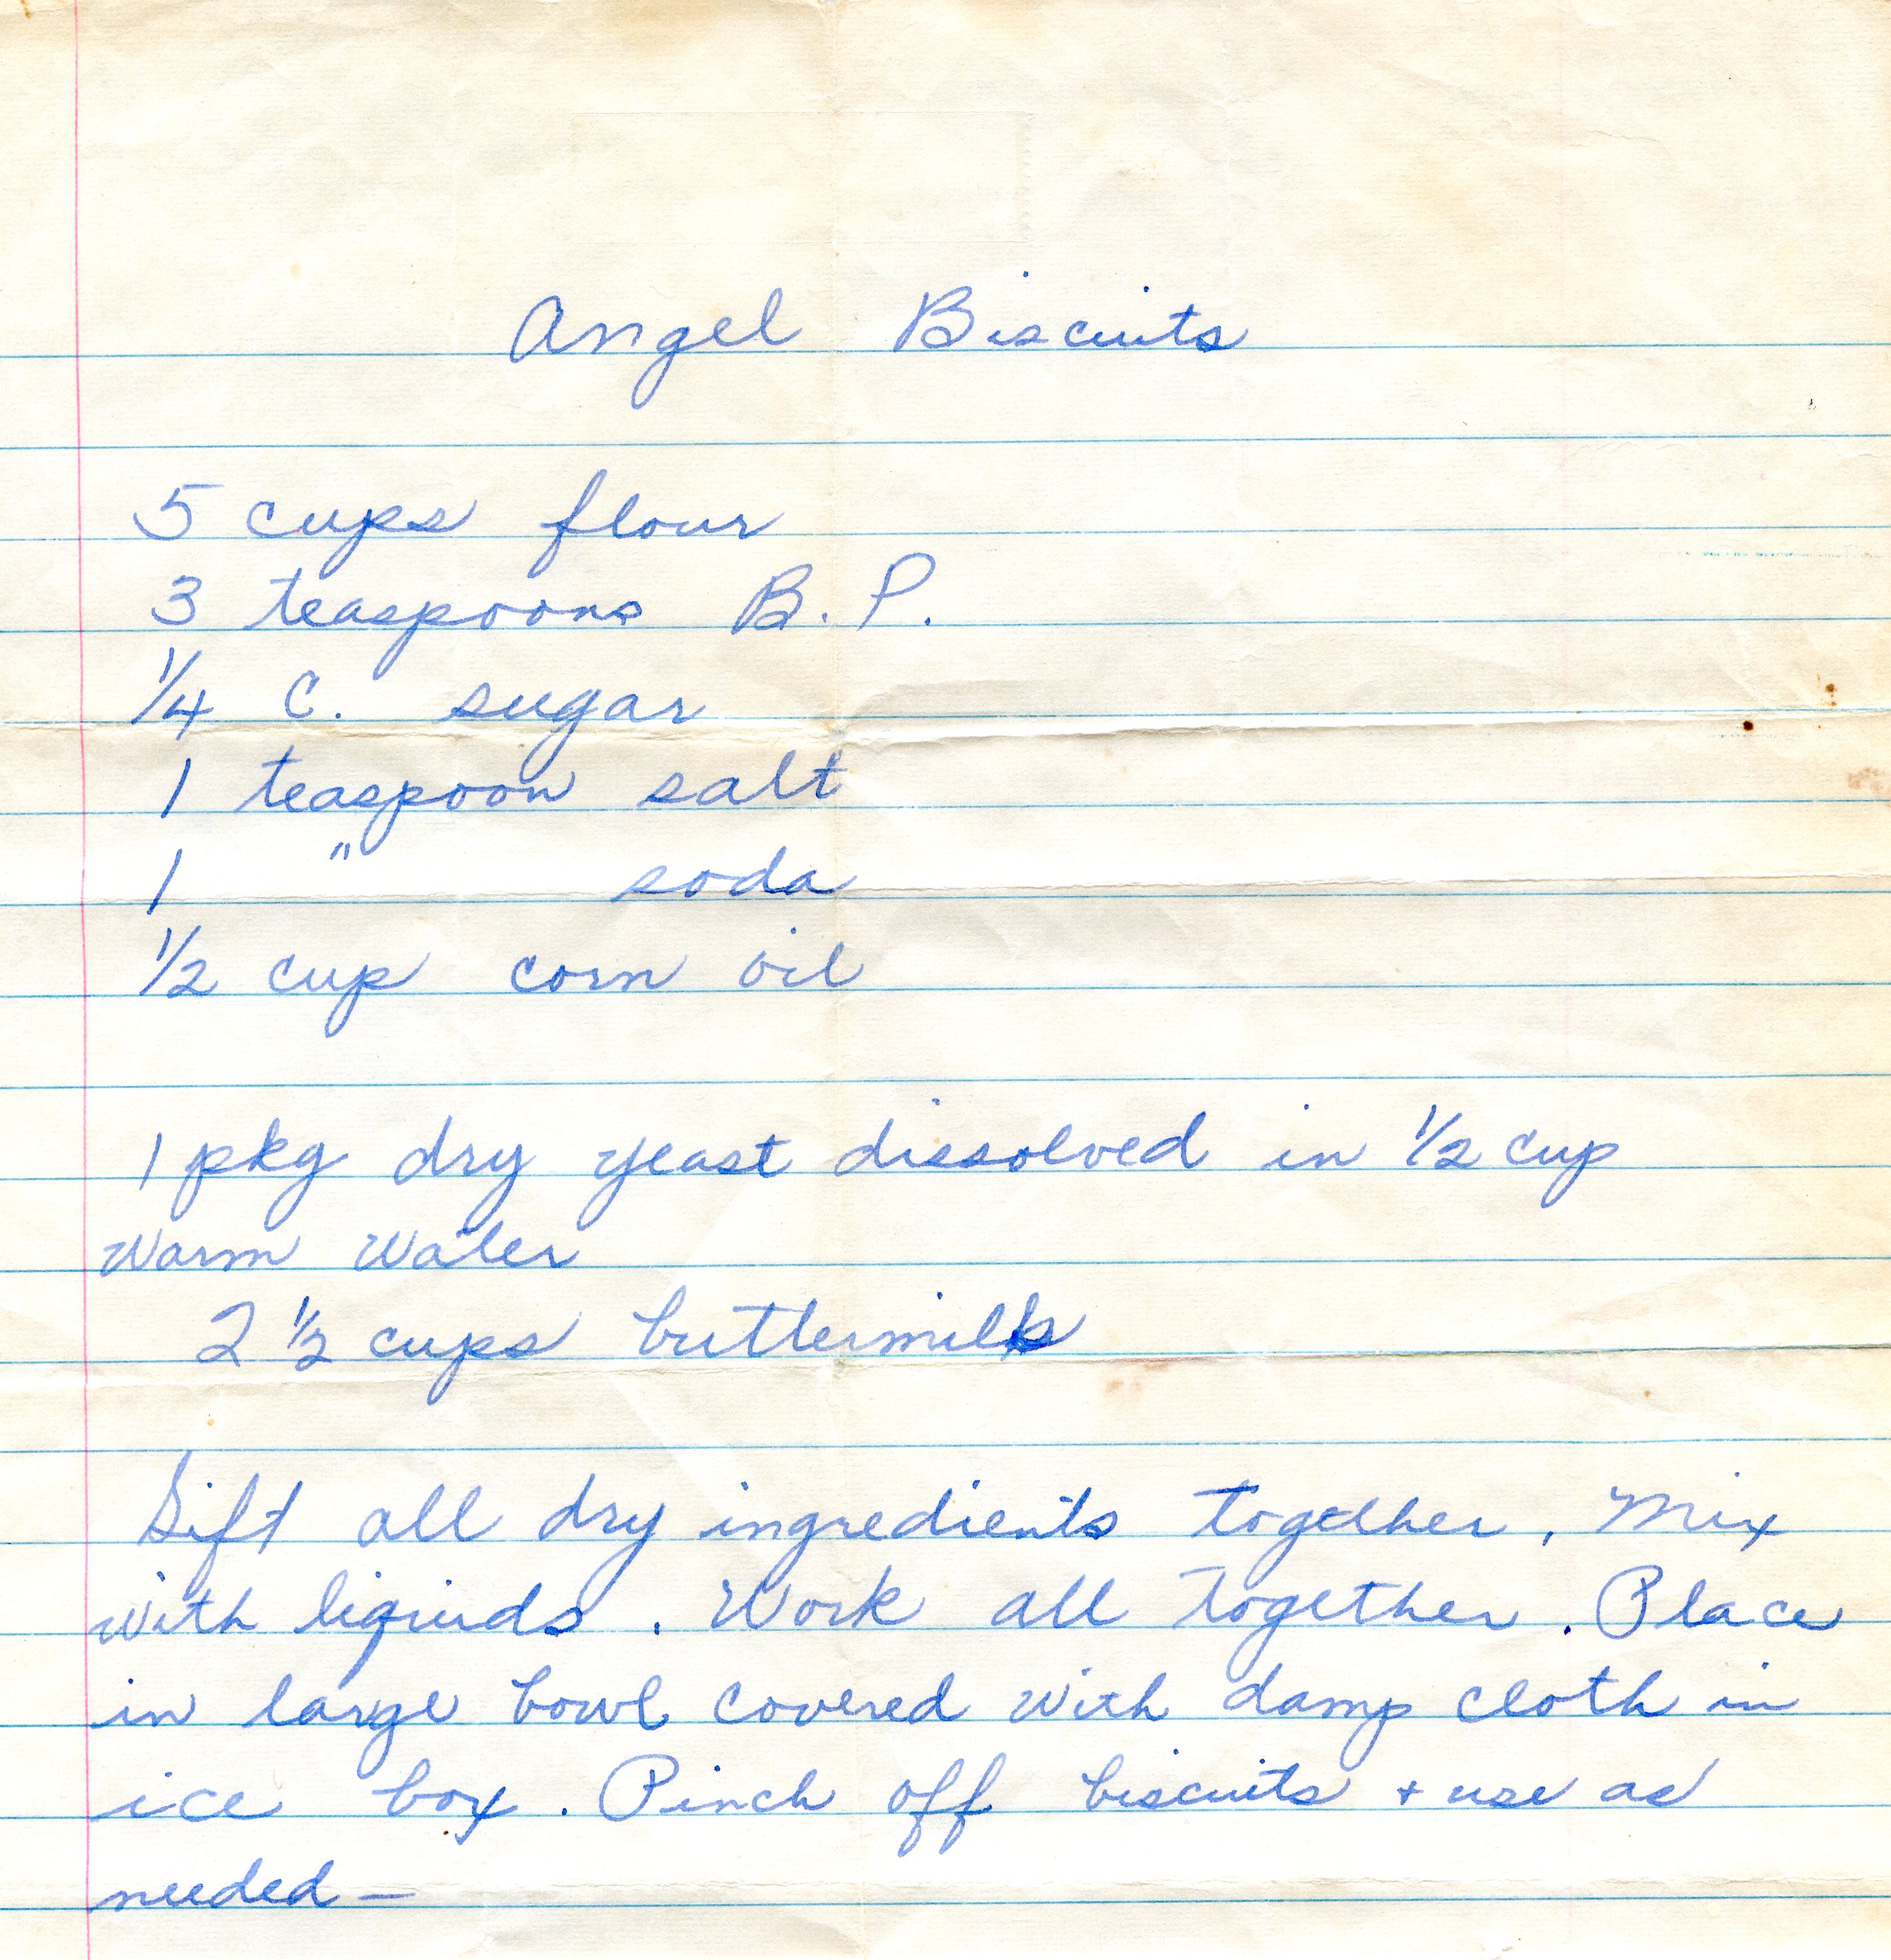 Angel Biscuits
5 cups flour
3 teaspoons B. P.
1/4 C. sugar
1 teaspoon salt
1 " soda
1/2 cup corn oil
1 pkg dry yeast dissolved in 1/2 cup
warm water
2 1/2 cups buttermilk
Sift all dry ingredients together, Mix
with liquids. Work all together. Place
in large bowl covered with damp cloth in
ice box. Pinch off biscuits + use as
needed —